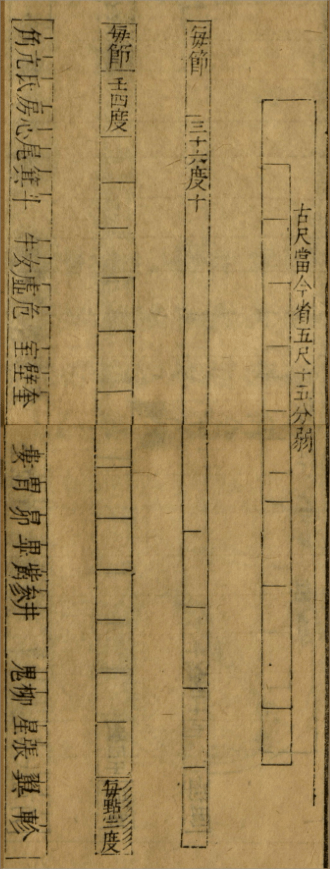 古尺當今省五尺十五分弱
每節 三十六度十
每節 壬四度 每點三度
角亢氐房心尾箕斗 牛女虛危 室壁奎 婁胃昴畢觜參井 鬼柳星張翼軫